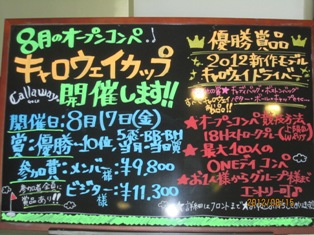 8月のオープンコンペ♪
キャロウェイカップ
Callaway
GOLF
開催します!!
開催日:8月17日(金)
賞:優勝~10位、5飛・BB・BM
当月・当日賞
参加費:メンバー様 ¥9,800
ビジター様 ¥11,300
参加者全員に
賞品あり!!
優勝賞品
2012新作モデル
キャロウェイドライバー
キャディバッグ・ボストンバッグ
パター・ボール・キャップなど
★オープンコンペ
18Hストロークプレー
★最大100人の
ONEデイコンペ
★お1人様からグループ様まで
エントリー可♪
詳細はフロントまで
2012/08/15